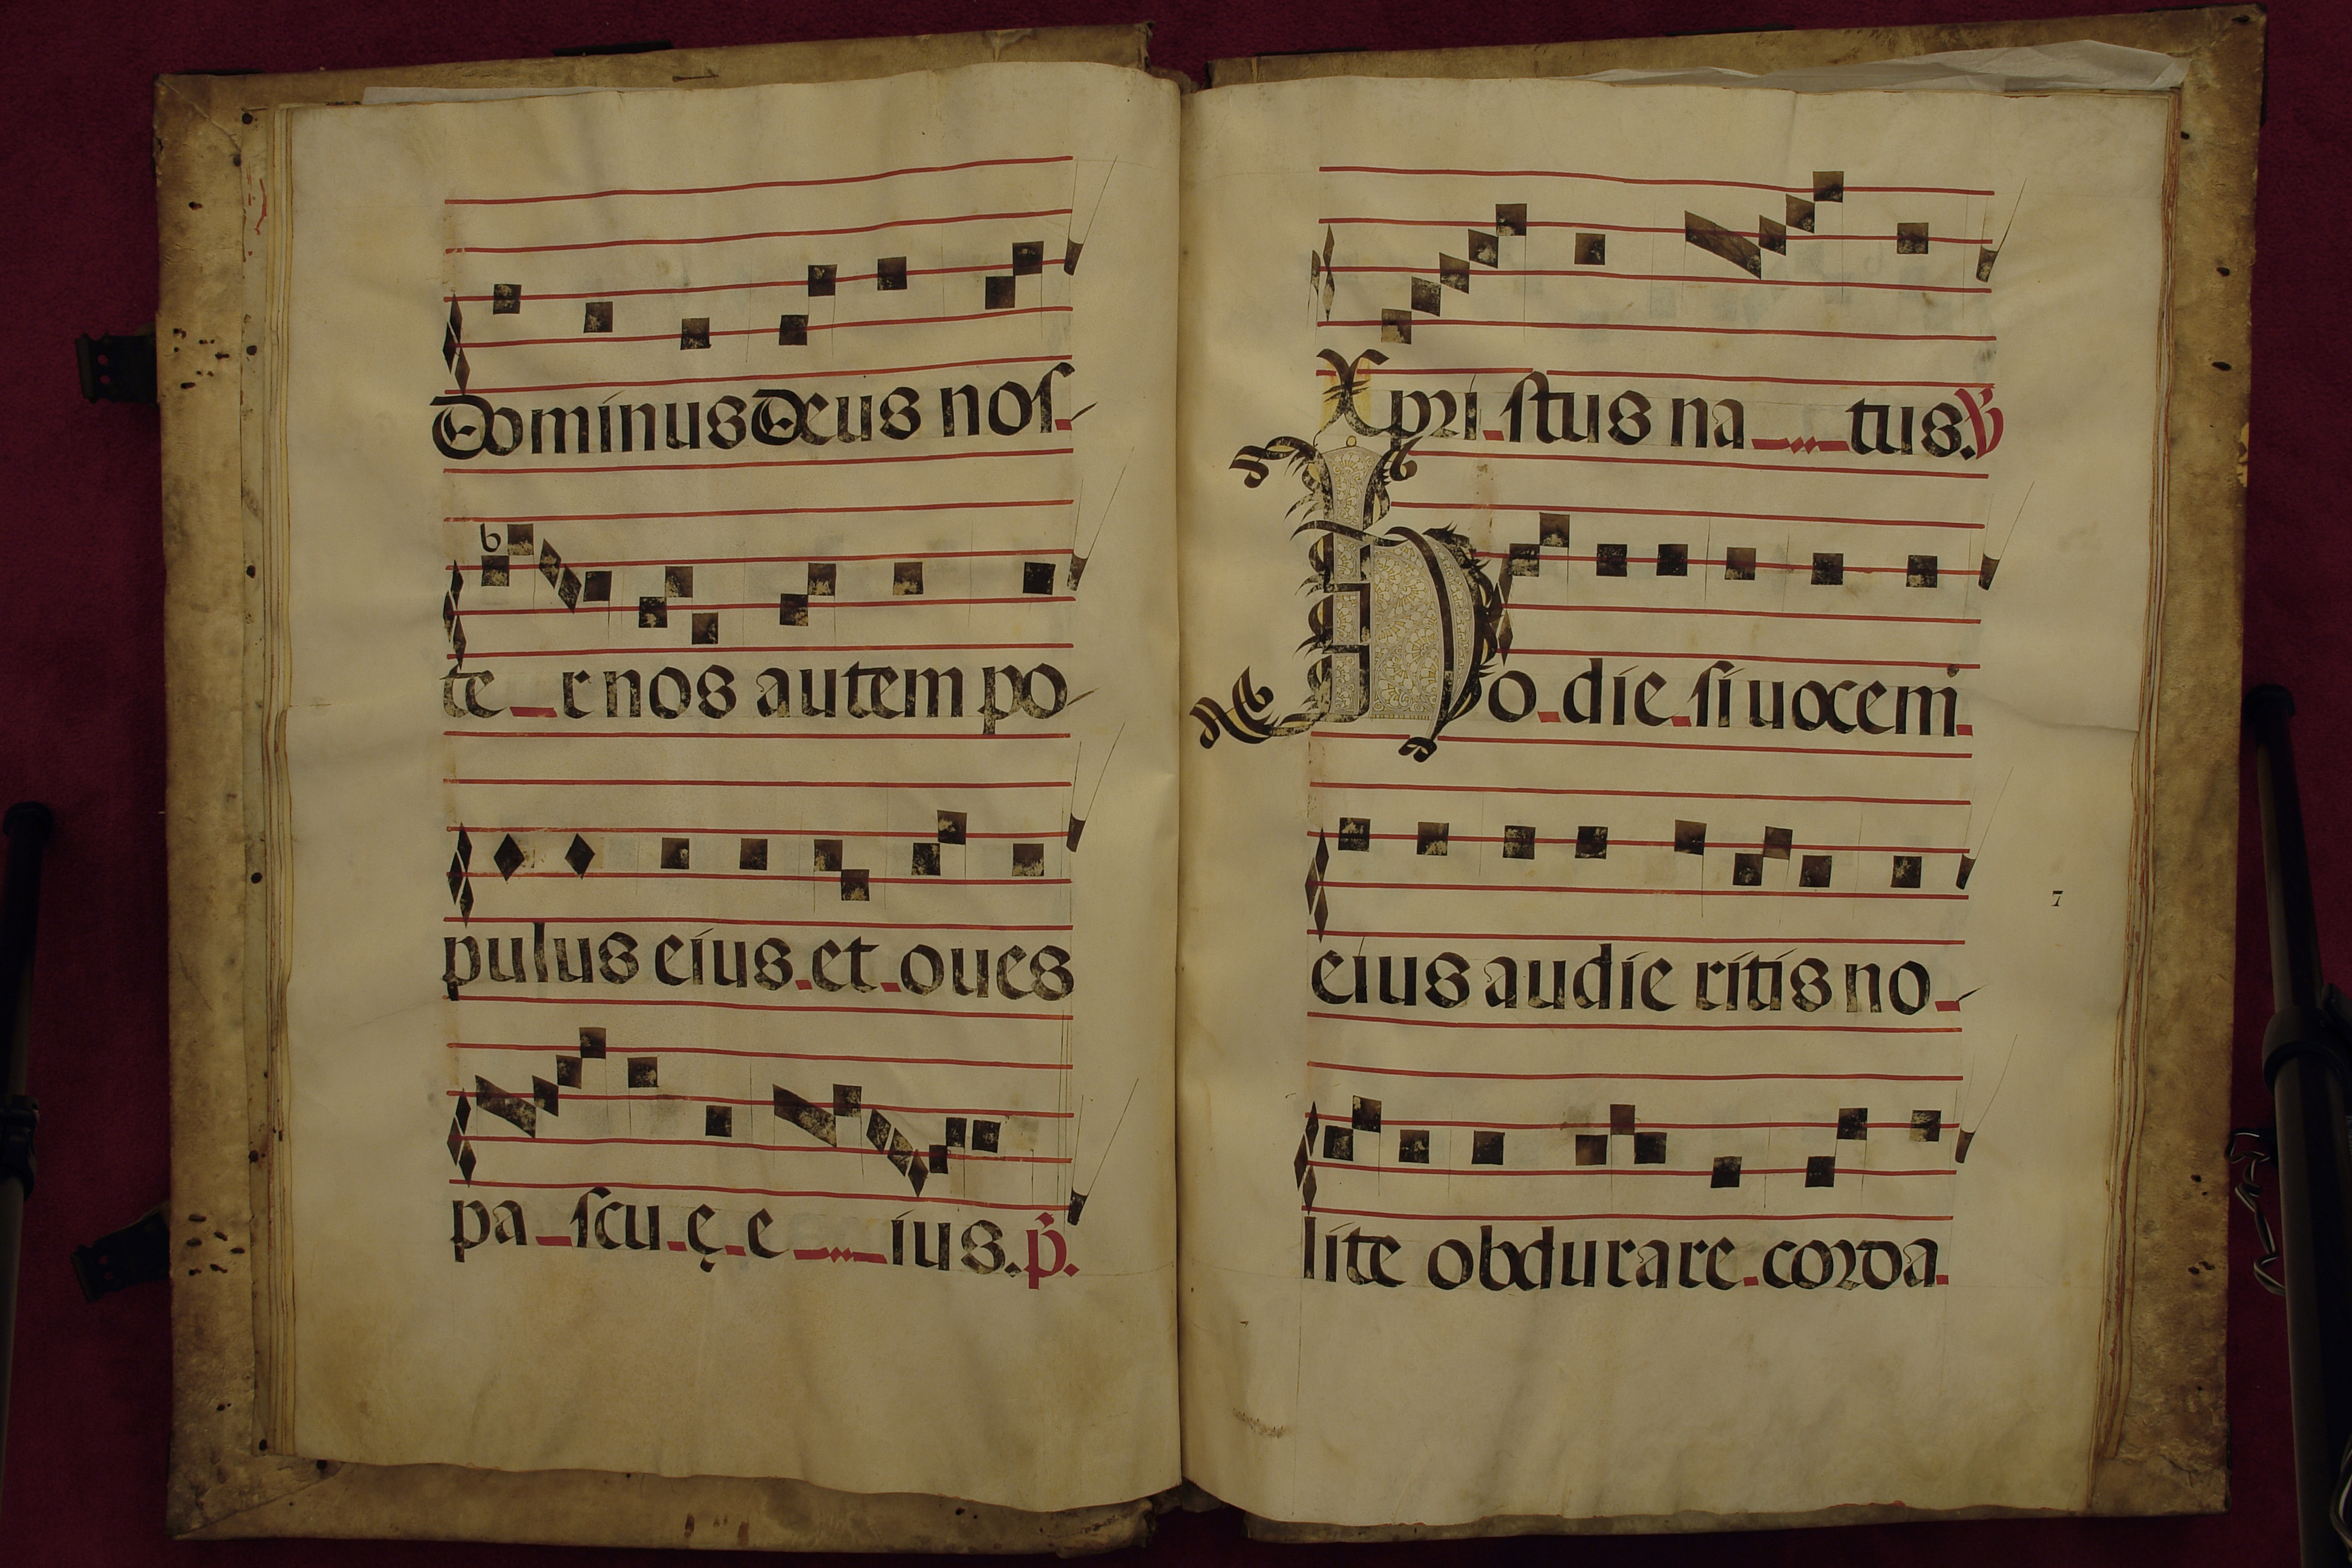 Dominus Deus nos
b
te r nos autem po
pulus eius. et oues
pa scu ę e ius. p.
Xpri stus na tus. V
Ho die si uocem
eius audie ritis no
7
lite obdurare corda